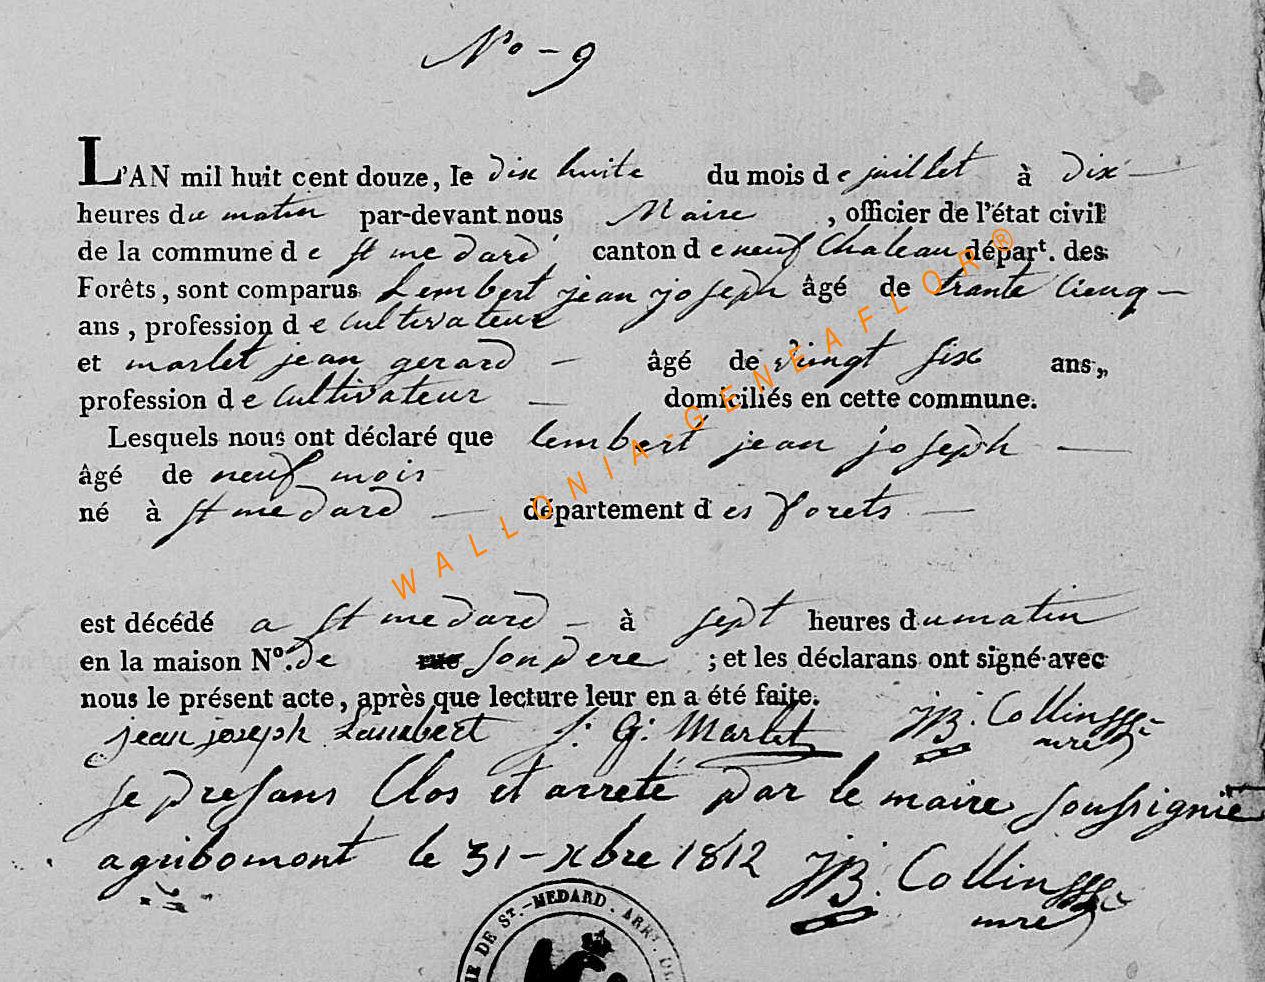 No - 9
L'AN mil huit cent douze, le dix huite du mois de juillet à dix
heures du matin par-devant nous Maire , officier de l'état civil
de la commune de st medard, canton de neuf Chateau départ. des
Forêts, sont comparus Lembert jean joseph âgé de trante cienq
ans, profession de cultivateur
et marlet jean gerard - âgé de vingt six ans,,
profession de cultivateur - domiciliés en cette commune.
Lesquels nous ont déclaré que lembert jean joseph
âgé de neuf mois
né à st medard - département des forets
est décédé a st medard - à sept heures du matin
en la maison No. de rue son pere ; et les déclarans ont signé avec
nous le présent acte, après que lecture leur en a été faite.
jean joseph Lambert J: G: Marlet JB. Collin
mre
se presans Clos et arreté par le maire soussignié
a gribomont le 31 - Xbre 1812 JB. Collin
mre
IE DE ST.-MEDARD. ARRT. DE
WALLONIA-GENEAFLOR®